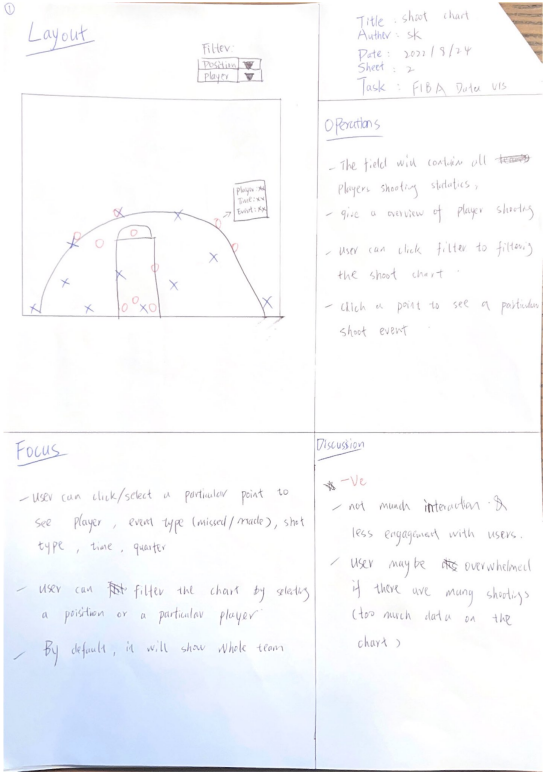 ①
Layout
Filter:
Position
Player
Player: xx
Time: xx
Event: xx
Title : shoot chart
Author : SK
Date : 2022/9/24
Sheet : 2
Task : FIBA Data VIS
Operations
- The field will contain all
players shooting statistics,
- give a overview of player shooting
- user can click filter to filtering
the shoot chart
- Click a point to see a particular
shoot event
Focus
- User can click/select a particular point to
see player, event type (missed/made), shot
type, time, quarter
- user can filter the chart by selecting
a poisition or a particular player
- By default, it will show whole team
Discussion
-Ve
- not munch interaction &
less engagement with users.
- User maybe overwhelmed
if there are many shootings
(too much data on the
chart)